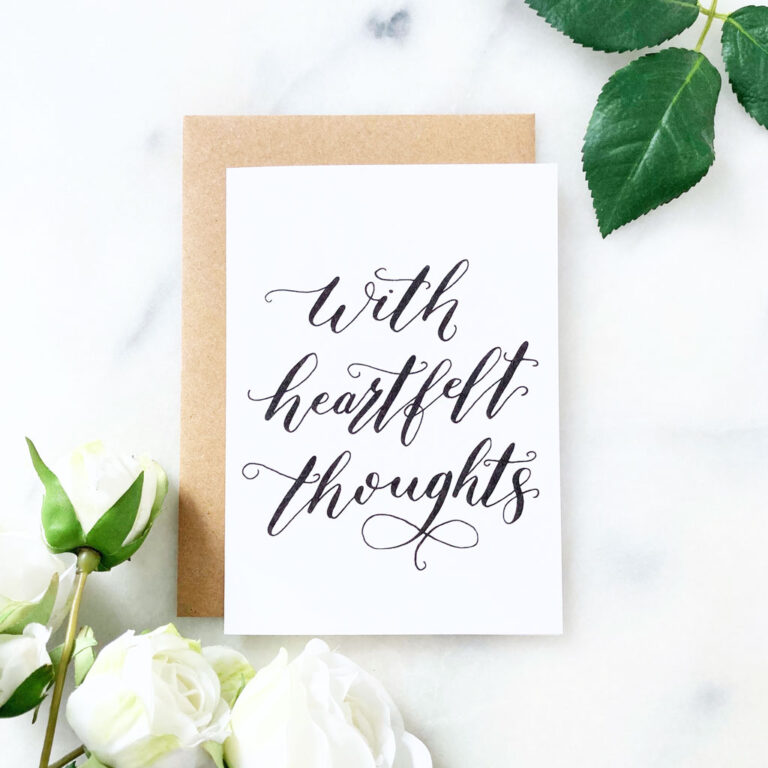 with
heartfelt
thoughts